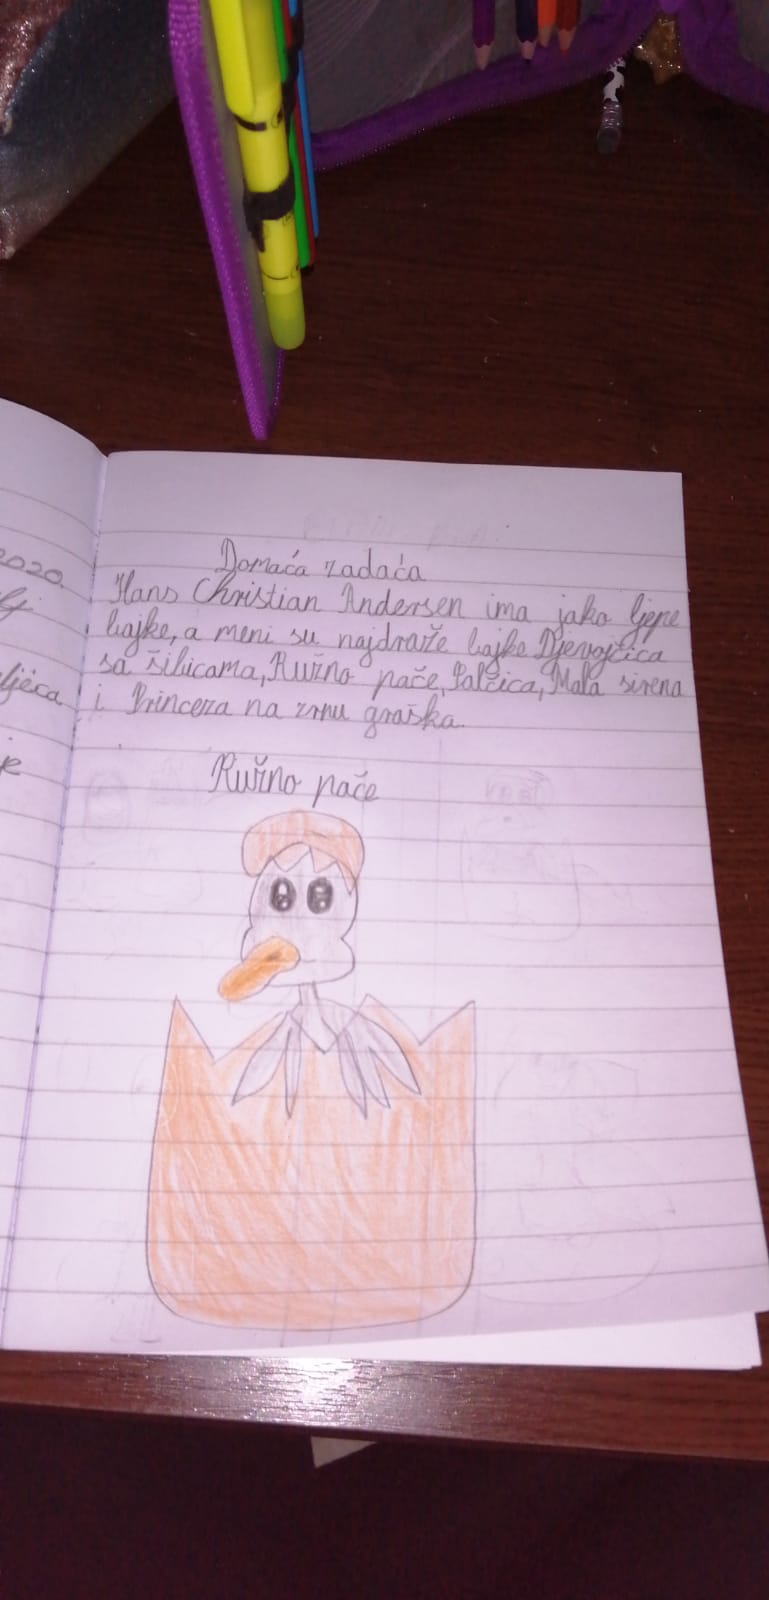 2020.
ljeća
je
Domaća zadaća
Hans Christian Andersen ima jako ljepe
bajke, a meni su najdraže bajke Djevojčica
sa šibicama, Ružno pače, Palčica, Mala sirena
i Princeza na zrnu graška.
Ružno pače